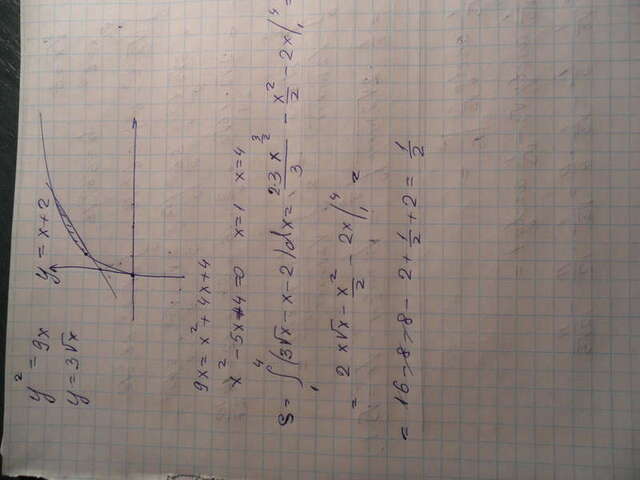 y² = 9x    y = x + 2
y = 3√x
9x = x² + 4x + 4
x² - 5x + 4 = 0    x = 1    x = 4
S = ∫₁⁴ (3√x - x - 2) dx = 2·3 x^(3/2) / 3 - x²/2 - 2x |₁⁴ =
= 2x√x - x²/2 - 2x |₁⁴ =
= 16 - 8 - 8 - 2 + 1/2 + 2 = 1/2